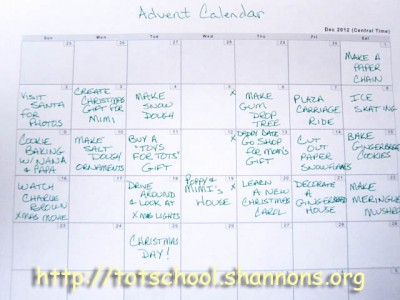 Advent Calendar
Dec 2012 (Central Time)
Sun Mon Tue Wed Thu Fri Sat
25 26 27 28 29 30 1
MAKE A
PAPER
CHAIN
2 3 4 5 6 7 8
VISIT
SANTA
FOR
PHOTOS
CREATE
CHRISTMAS
GIFT FOR
MIMI
MAKE
SNOW
DOUGH
X
MAKE
GUM
DROP
TREE
PLAZA
CARRIAGE
RIDE
ICE
SKATING
9 10 11 12 13 14 15
COOKIE
BAKING
W/ NANA
& PAPA
MAKE
SALT
DOUGH
ORNAMENTS
BUY A
"TOYS
FOR TOTS"
GIFT
X
DADDY DATE
GO SHOP
FOR MOM'S
GIFT
CUT
OUT
PAPER
SNOWFLAKES
BAKE
GINGERBREAD
COOKIES
16 17 18 19 20 21 22
WATCH
CHARLIE
BROWN
XMAS MOVIE
DRIVE
AROUND
& LOOK AT
XMAS LIGHTS
POPPY &
MIMI'S
HOUSE
X
LEARN
A NEW
CHRISTMAS
CAROL
DECORATE
A
GINGERBREAD
HOUSE
MAKE
MERINGUE
MUSHROOMS
23 24 25 26 27 28 29
CHRISTMAS
DAY!
http://totschool.shannons.org